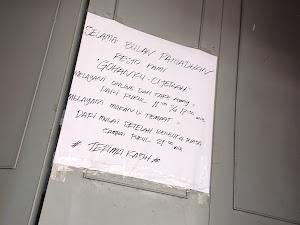 SELAMA BULAN RAMADHAN
RESTO KAMI
"GOKANKU - CIJERAH"
MELAYANI ONLINE DAN TAKE AWAY
DARI PUKUL 11.00 S/d 18.00 WIB
MELAYANI MAKAN DI TEMPAT
DARI MULAI SETELAH BERBUKA PUASA
SAMPAI PUKUL 21.00 WIB
# TERIMA KASIH #